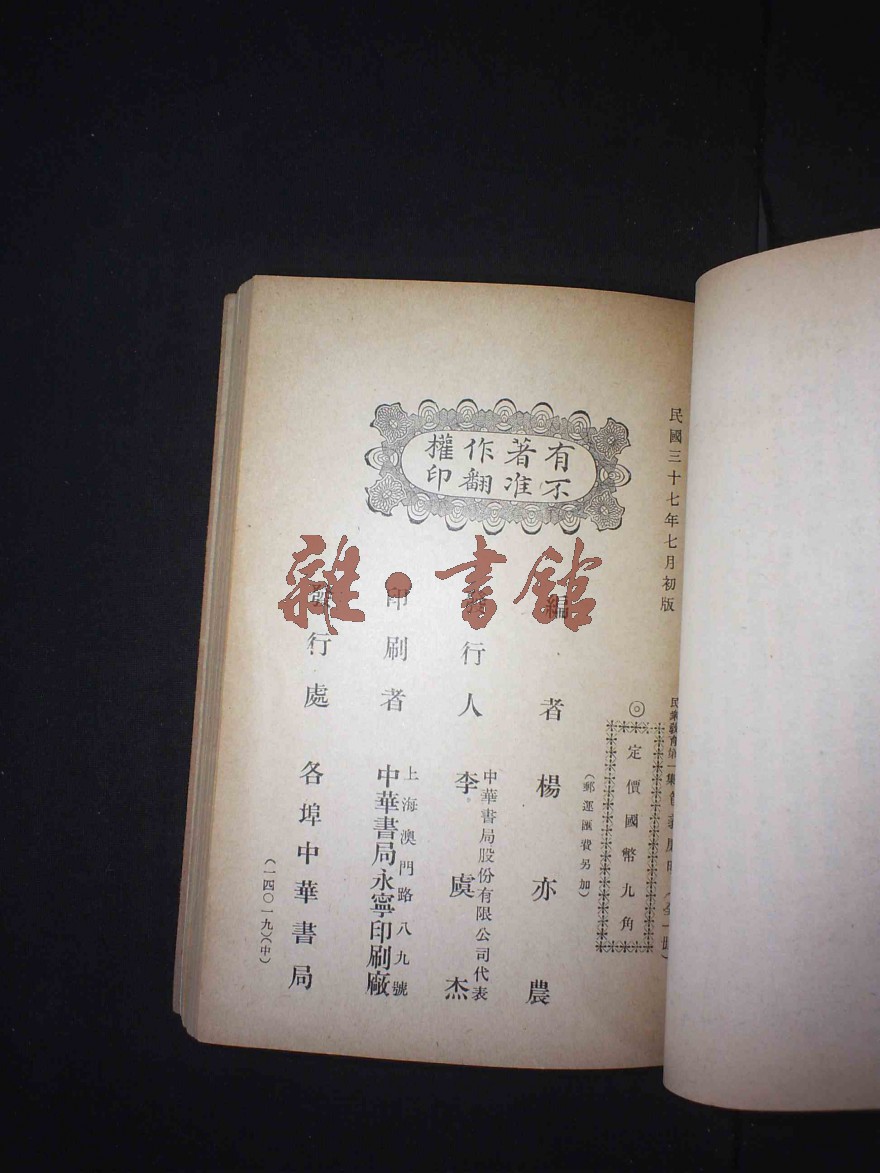 民國三十七年七月初版
民衆教育第一集
(全一冊)
◎定價國幣九角
(郵運匯費另加)
有著作權
不准翻印
編者 楊亦農
發行人 中華書局股份有限公司代表
李虞杰
印刷者 上海澳門路八九號
中華書局永寧印刷廠
發行處 各埠中華書局
(一四〇一九)(中)
雜·書館